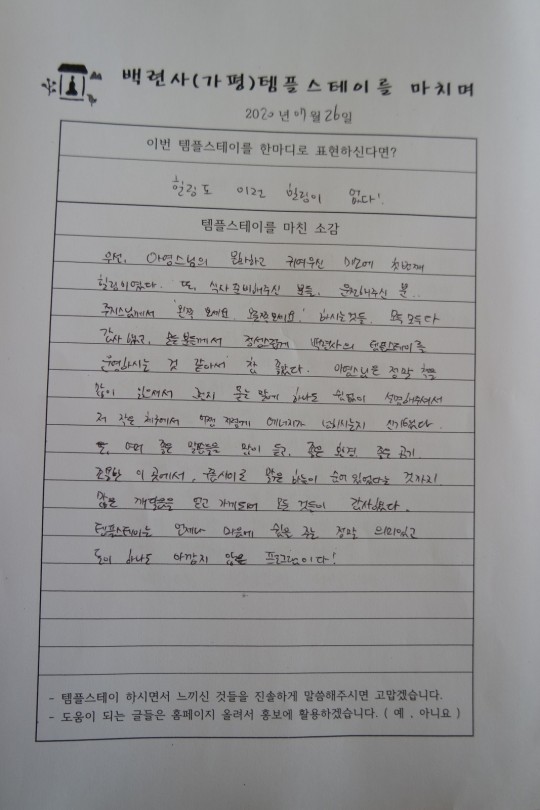 백련사(가평)템플스테이를 마치며
2020년 07월 26일
이번 템플스테이를 한마디로 표현하신다면?
힐링도 이런 힐링이 없다!
템플스테이를 마친 소감
우선, 스님의 온화하고 귀여우신 미모에 첫번째
힐링이였다. 또, 식사 준비해주신 분들, 운전해주신 분..
주지스님께서 '왼쪽 보세요 오른쪽 보세요.' 하시는 것들. 모두 모두 다
감사했고, 모든 분들께서 정성스럽게 백련사의 템플스테이를
운영하시는 것 같아서 참 좋았다. 스님은 정말 책을
많이 읽으셔서 묻는 말에 하나도 설명해주셔서
저 작은 체구에서 어떤 저렇게 에너지가 넘치시는지 신기했다.
또, 여러 좋은 말씀들을 많이 듣고, 좋은 환경 좋은 공기
이 곳에서, 맑은 하늘이 숨어 있었다는 것까지
많은 깨달음을 얻고 가게되어 모든 것들이 감사했다.
템플스테이는 언제나 마음에 쉼을 주는 정말 의미있고
돈이 하나도 아깝지 않은 프로그램이다!
- 템플스테이 하시면서 느끼신 것들을 진솔하게 말씀해주시면 고맙겠습니다.
- 도움이 되는 글들은 홈페이지 올려서 홍보에 활용하겠습니다. ( 예 , 아니요 )